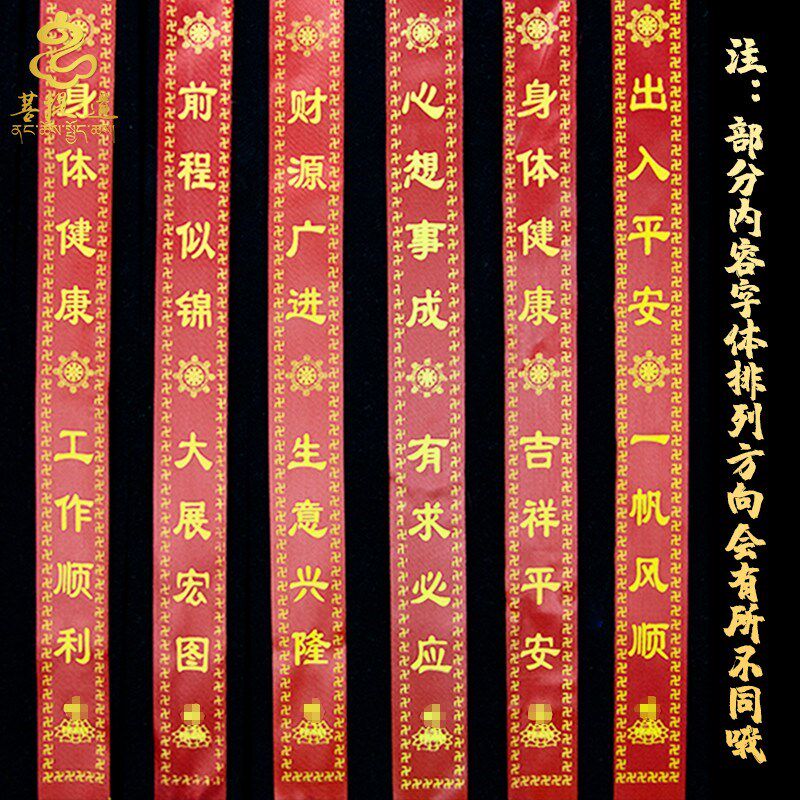 菩提道
ནང་ཆོས་སྤྱོད་ཚས།
身体健康
工作顺利
前程似锦
大展宏图
财源广进
生意兴隆
心想事成
有求必应
身体健康
吉祥平安
出入平安
一帆风顺
注：部分内容字体排列方向会有所不同哦